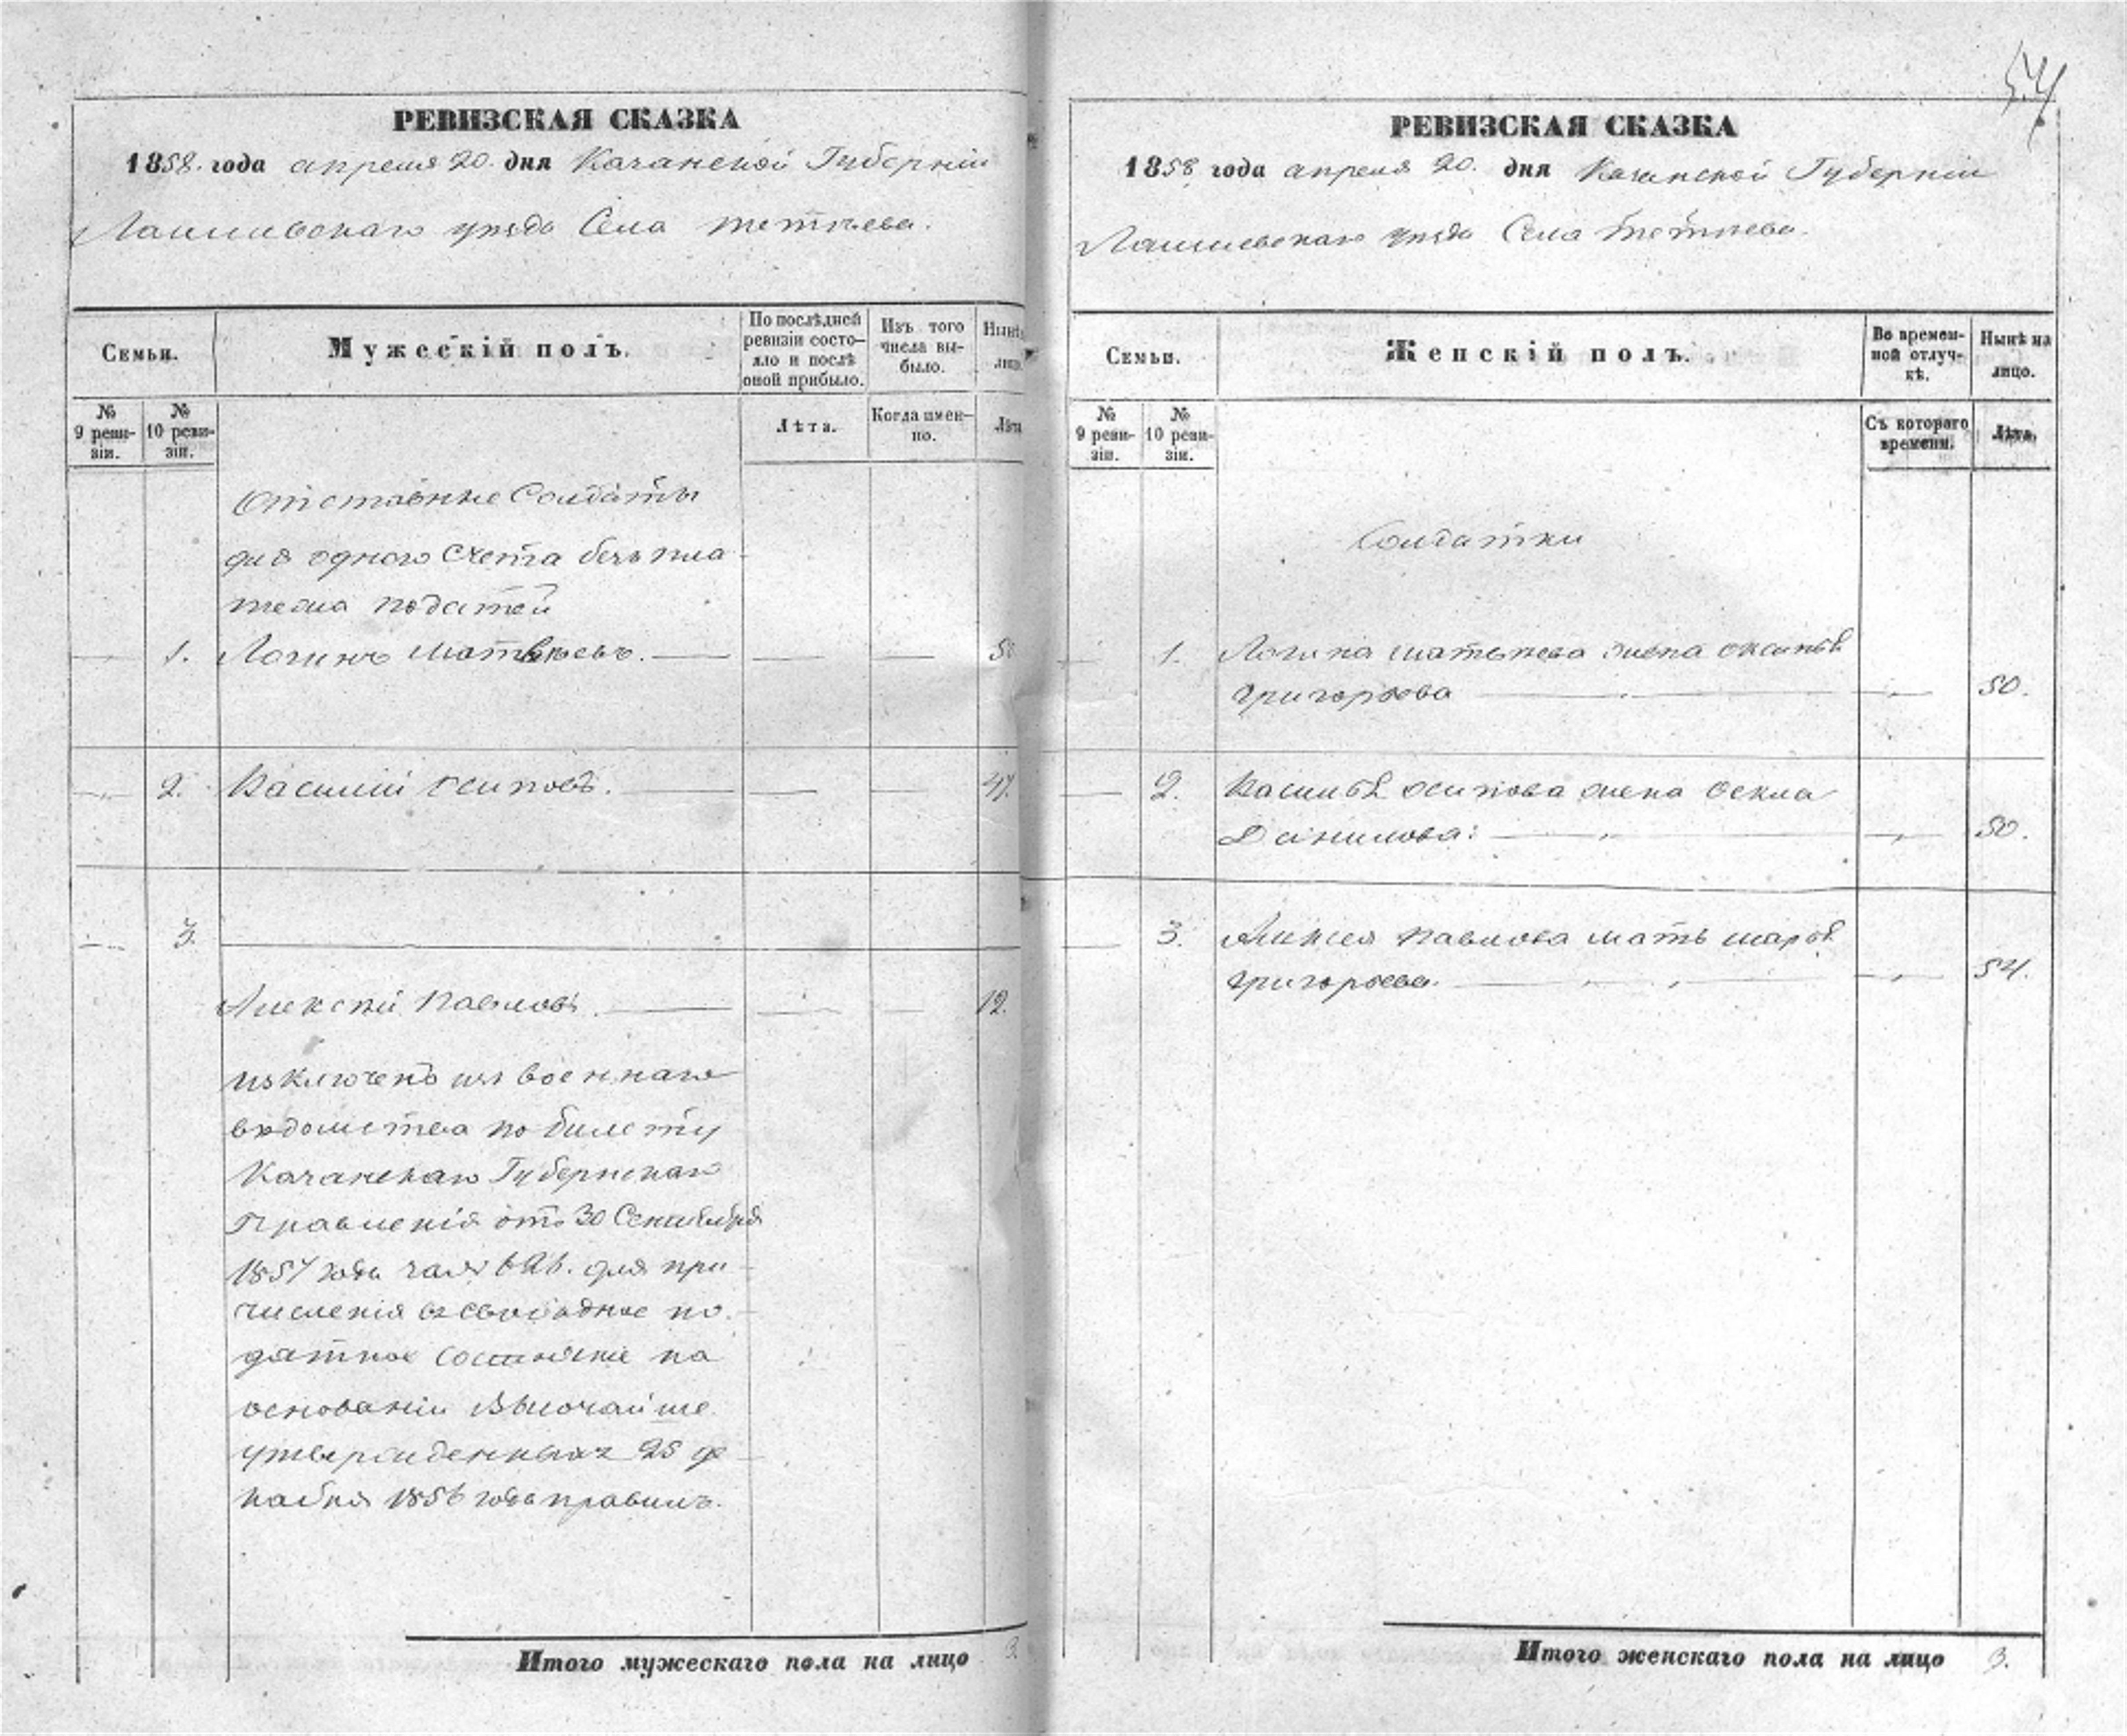 54
РЕВИЗСКАЯ СКАЗКА
1858. года апреля 20. дня Казанской Губерніи
Лаишевскаго уѣзда Села тетѣева.
Семьи.
Мужескій полъ.
По послѣдней ревизіи состояло и послѣ оной прибыло.
Изъ того числа выбыло.
Нынѣ
лицо
№ 9 ревизіи.
№ 10 ревизіи.
Лѣта.
Когда именно.
Лѣта
Отставные Солдаты
для одного Счета безъ пла
тежа податей
1. Логинъ Матвѣевъ.
2. Василій Осиповъ. 47.
3.
Алексѣй Павловъ. 12.
изключенъ изъ военнаго
вѣдомства по билету
Казанскаго Губернскаго
Правленія отъ 30 Сентября
1857 года за № 626. для при
численія въ свободное по
датное состояніе на
основаніи Высочайше
утвержденныхъ 25 де
кабря 1856 года правилъ.
Итого мужескаго пола на лицо 3.
РЕВИЗСКАЯ СКАЗКА
1858 года апреля 20. дня Казанской Губерніи
Лаишевскаго уѣзда Села тетѣева.
Семьи.
Женскій полъ.
Во временной отлучкѣ.
Нынѣ на лицо.
№ 9 ревизіи.
№ 10 ревизіи.
Съ котораго времени.
Лѣта.
Солдатки
1. Логина Матвѣева жена оксинья
Григорьева 50.
2. Василья осипова жена Фекла
Данилова: 50.
3. Алексея Павлова мать марья
Григорьева. 54.
Итого женскаго пола на лицо 3.